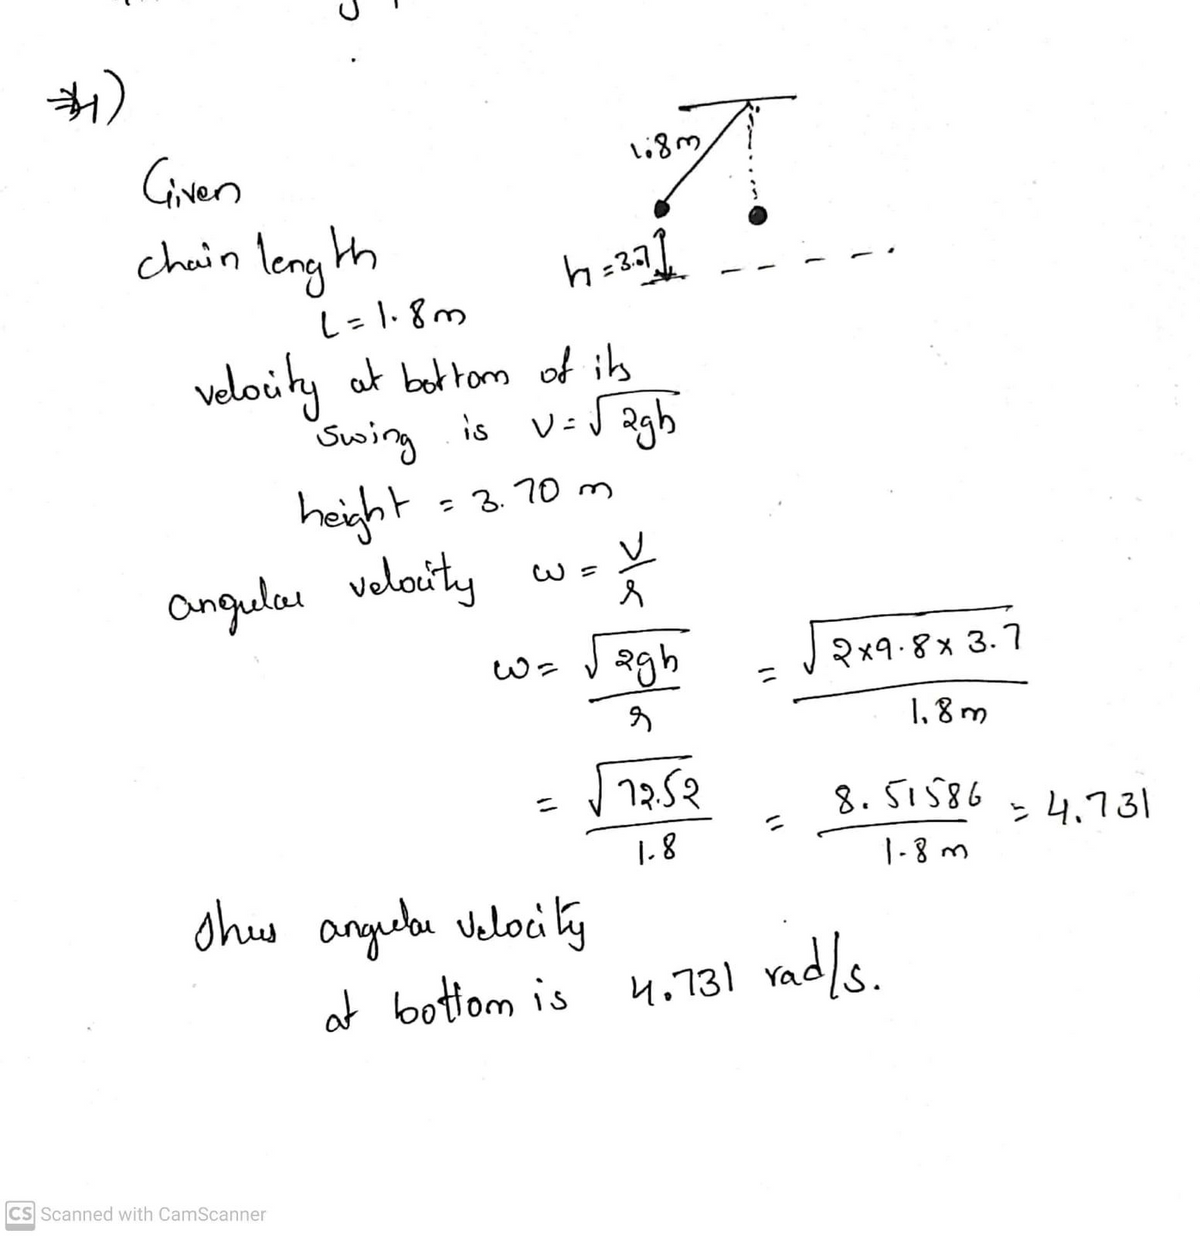 4)
1.8m
Given
chain length
h=3.7
L=1.8m
velocity at bottom of its
swing is v=√2gh
height = 3.70 m
angular velocity ω = v/r
ω = √2gh/r = √2×9.8×3.7/1.8m
= √72.52/1.8 = 8.51586/1.8 m = 4.731
Thus angular velocity
at bottom is 4.731 rad/s.
CS Scanned with CamScanner